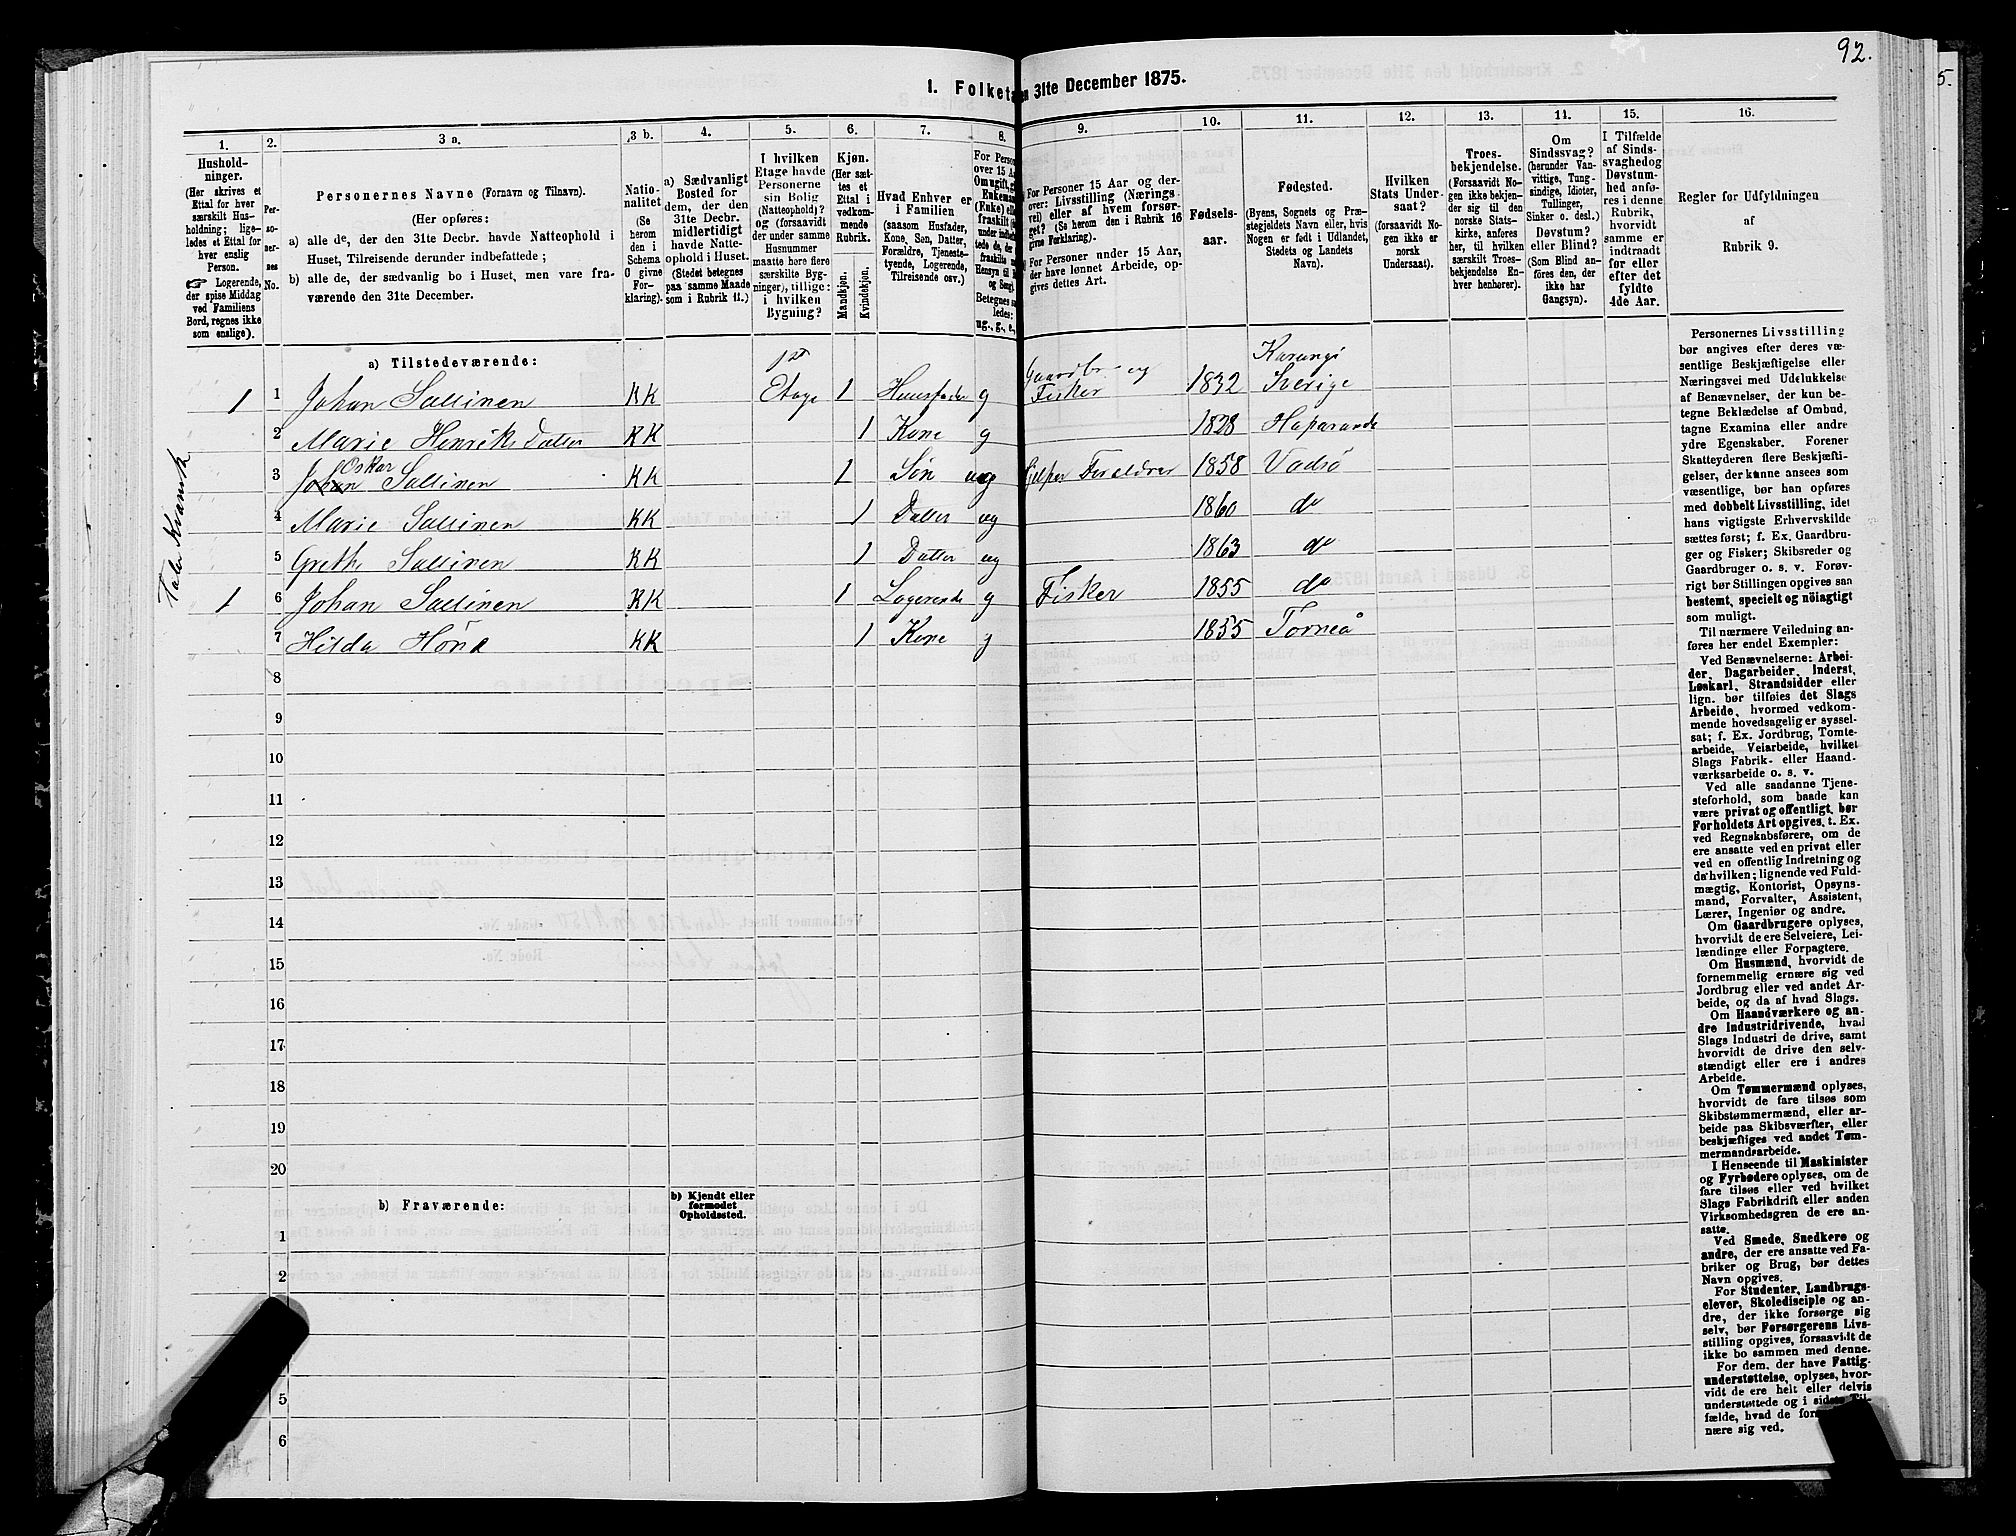 92.
5.
1. Folketa en 31te December 1875.
1. 2. 3 a. 3 b. 4. 5. 6. 7. 8. 9. 10. 11. 12. 13. 14. 15. 16.
Hushold-
ninger.
(Her skrives et
Ettal for hver
særskilt Hus-
holdning; lige-
ledes et Ettal for
hver enslig
Person.
☞ Logerende,
der spise Middag
ved Familiens
Bord, regnes ikke
som enslige).
Per-
so-
ner-
nes
No.
Personernes Navne (Fornavn og Tilnavn).
(Her opføres:
a) alle de, der den 31te Decbr. havde Natteophold i
Huset, Tilreisende derunder indbefattede;
b) alle de, der sædvanlig bo i Huset, men vare fra-
værende den 31te December.
Natio-
nalitet
(Se
herom
den i
Schema
O givne
For-
klaring).
a) Sædvanligt
Bosted for
dem, der den
31te Decbr.
midlertidigt
havde Natte-
ophold i Huset.
(Stedet betegnes
paa samme Maade
som i Rubrik 11.)
I hvilken
Etage havde
Personerne
sin Bolig
(Natteophold)?
og (forsaavidt
der under samme
Husnummer
maatte høre flere
særskilte Byg-
ninger), tillige:
i hvilken
Bygning?
Kjøn.
(Her sæt-
tes et
Ettal i
vedkom-
mende
Rubrik.
Mandkjøn.
Kvindekjøn.
Hvad Enhver er
i Familien
(saasom Husfader,
Kone, Søn, Datter,
Forældre, Tjeneste-
tyende, Logerende,
Tilreisende osv.)
For Person
over 15 Aa
Om ugift, g
Enkeman
(Enke) elle
fraskilt
under indbef
tede de, de
fraskilte
Hensyn til
og Seng).
Betegnes s
ledes:
ug., g., e.,
For Personer 15 Aar og der-
over: Livsstilling (Nærings-
vei) eller af hvem forsør-
get? (Se herom den i Rubrik 16
givne Forklaring).
For Personer under 15 Aar,
der have lønnet Arbeide, op-
gives dettes Art.
Fødsels-
aar.
Fødested.
(Byens, Sognets og Præ-
stegjeldets Navn eller, hvis
Nogen er født i Udlandet,
Stedets og Landets
Navn).
Hvilken
Stats Under-
saat?
(forsaavidt
Nogen ikke er
norsk
Undersaat).
Troes-
bekjendelse.
(Forsaavidt No-
gen ikke bekjen-
der sig til den
norske Stats-
kirke, anføres
her, til hvilken
særskilt Troes-
bekjendelse En-
hver henhører).
Om
Sindssvag?
(herunder Van-
vittige, Tung-
sindige, Idioter,
Tullinger,
Sinker o. desl.)
Døvstum?
eller Blind?
(Som Blind an-
føres den, der
ikke har
Gangsyn).
I Tilfælde
af Sinds-
svaghedog
Døvstum-
hed anfø-
res i denne
Rubrik,
hvorvidt
samme er
indtraadt
før eller
efter det
fyldte
4de Aar.
Regler for Udfyldningen
af
Rubrik 9.
a) Tilstedeværende:
1ste Karungi
1 1 Johan Sallinen KK Etage 1 Huusfader g Gaardbr og Fisker 1832 Sverige
2 Marie Henriks Datter KK 1 Kone g 1828 Haparanda
3 Johan Oskar Sallinen KK 1 Søn ug Hjelper Forældrer 1858 Vadsö
4 Marie Sallinen KK 1 Datter ug 1860 do
5 Grethe Sallinen KK 1 Datter ug 1863 do
1 6 Johan Sallinen KK 1 Logerende g Fisker 1855 do
7 Hilda KK 1 Kone g 1855 Torneå
Taler Kvænsk
8
9
10
11
12
13
14
15
16
17
18
19
20
b) Fraværende:
b) Kjendt eller
formodet
Opholdssted.
1
2
5
6
Personernes Livsstilling
bør angives efter deres væ-
sentlige Beskjæftigelse eller
Næringsvei med Udelukkelse
af Benævnelser, der kun be-
tegne Beklædelse af Ombud,
tagne Examina eller andre
ydre Egenskaber. Forener
Skatteyderen flere Beskjæfti-
gelser, der kunne ansees som
væsentlige, bør han opføres
med dobbelt Livsstilling, idet
hans vigtigste Erhvervskilde
sættes først; f. Ex. Gaardbru-
ger og Fisker; Skibsreder og
Gaardbruger o. s. v. Forøv-
rigt bør Stillingen opgives saa
bestemt, specielt og nöiagtigt
som muligt.
Til nærmere Veiledning an-
føres her endel Exempler:
Ved Benævnelserne: Arbei-
der, Dagarbeider, Inderst,
Løskarl, Strandsidder eller
lign. bør tilføies det Slags
Arbeide, hvormed vedkom-
mende hovedsagelig er syssel-
sat; f. Ex. Jordbrug, Tomte-
arbeide, Veiarbeide, hvilket
Slags Fabrik- eller Haand-
værksarbeide o. s. v.
Ved alle saadanne Tjene-
steforhold, som baade kan
være privat og offentligt, bør
Forholdets Art opgives, t. Ex.
ved Regnskabsførere, om de
ere ansatte ved en privat eller
ved en offentlig Indretning og
da hvilken; lignende ved Fuld-
mægtig, Kontorist, Opsyns-
mand, Forvalter, Assistent,
Lærer, Ingeniør og andre.
Om Gaardbrugere oplyses,
hvorvidt de ere Selveiere, Lei-
lændinge eller Forpagtere.
Om Husmænd, hvorvidt de
fornemmelig ernære sig ved
Jordbrug eller ved andet Ar-
beide, og da af hvad Slags.
Om Haandværkere og an-
dre Industridrivende, hvad
Slags Industri de drive, samt
hvorvidt de drive den selv-
stændigt eller ere i andres
Arbeide.
Om Tømmermænd oplyses,
hvorvidt de fare tilsøs som
Skibstømmermænd, eller ar-
beide paa Skibsværfter, eller
beskjæftiges ved andet Tøm-
mermandsarbeide.
I Henseende til Maskinister
og Fyrbødere oplyses, om de
fare tilsøs eller ved hvilket
Slags Fabrikdrift eller anden
Virksomhedsgren de ere an-
satte.
Ved Smede, Snedkere og
andre, der ere ansatte ved Fa-
briker og Brug, bør dettes
Navn opgives.
For Studenter, Landbrugs-
elever, Skoledisciple og an-
dre, der ikke forsørge sig
selv, bør Forsørgerens Livs-
stilling opgives, forsaavidt de
ikke bo sammen med denne.
For dem, der have Fattig-
understøttelse, oplyses, hvor-
vidt de ere helt eller delvis
understøttede og i sidste Til-
fælde, hvad de for
nære sig ved.